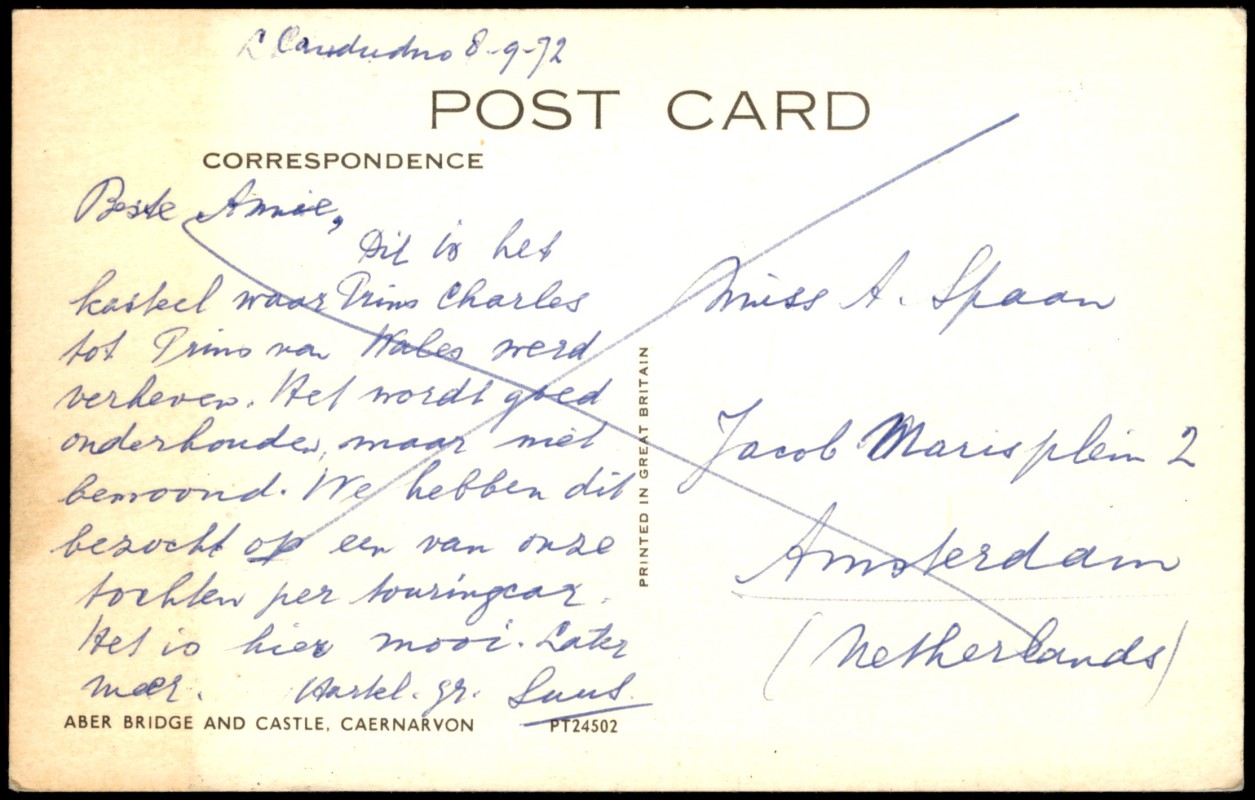 Llandudno 8-9-72
POST CARD
CORRESPONDENCE
Beste Annie,
Dit is het
kasteel waar Prins Charles
tot Prins van Wales werd
verheven. Het wordt goed
onderhouden, maar niet
bewoond. We hebben dit
bezocht op een van onze
tochten per touringcar.
Het is hier mooi. Later
meer. Hartel. gr. Suus.
ABER BRIDGE AND CASTLE, CAERNARVON PT24502
PRINTED IN GREAT BRITAIN
Miss A. Spaan
Jacob Marisplein 2
Amsterdam
(Netherlands)